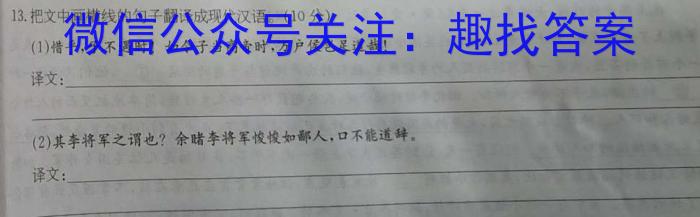 13.把文中画横线的句子翻译成现代汉语。(10分)
微信公众号关注：趣找答案
(1)惜
译文:
(2)其李将军之谓也？余睹李将军悛悛如鄙人,口不能道辞。
译文: